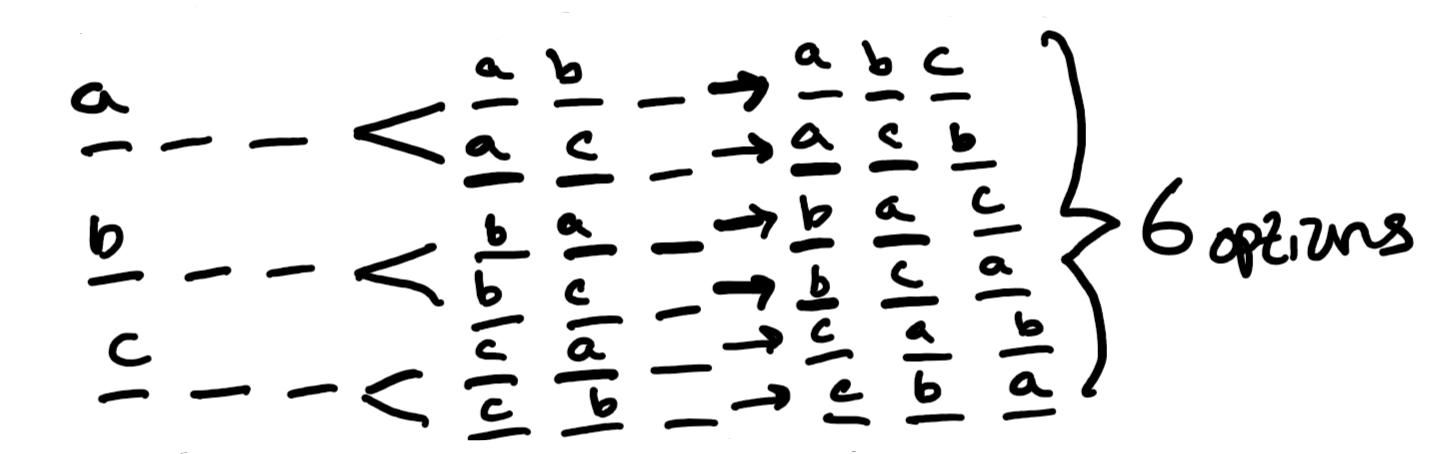 a b → a b c
a
a c → a c b
b a → b a c
b
b c → b c a
c
c a → c a b
c b → c b a
6 options